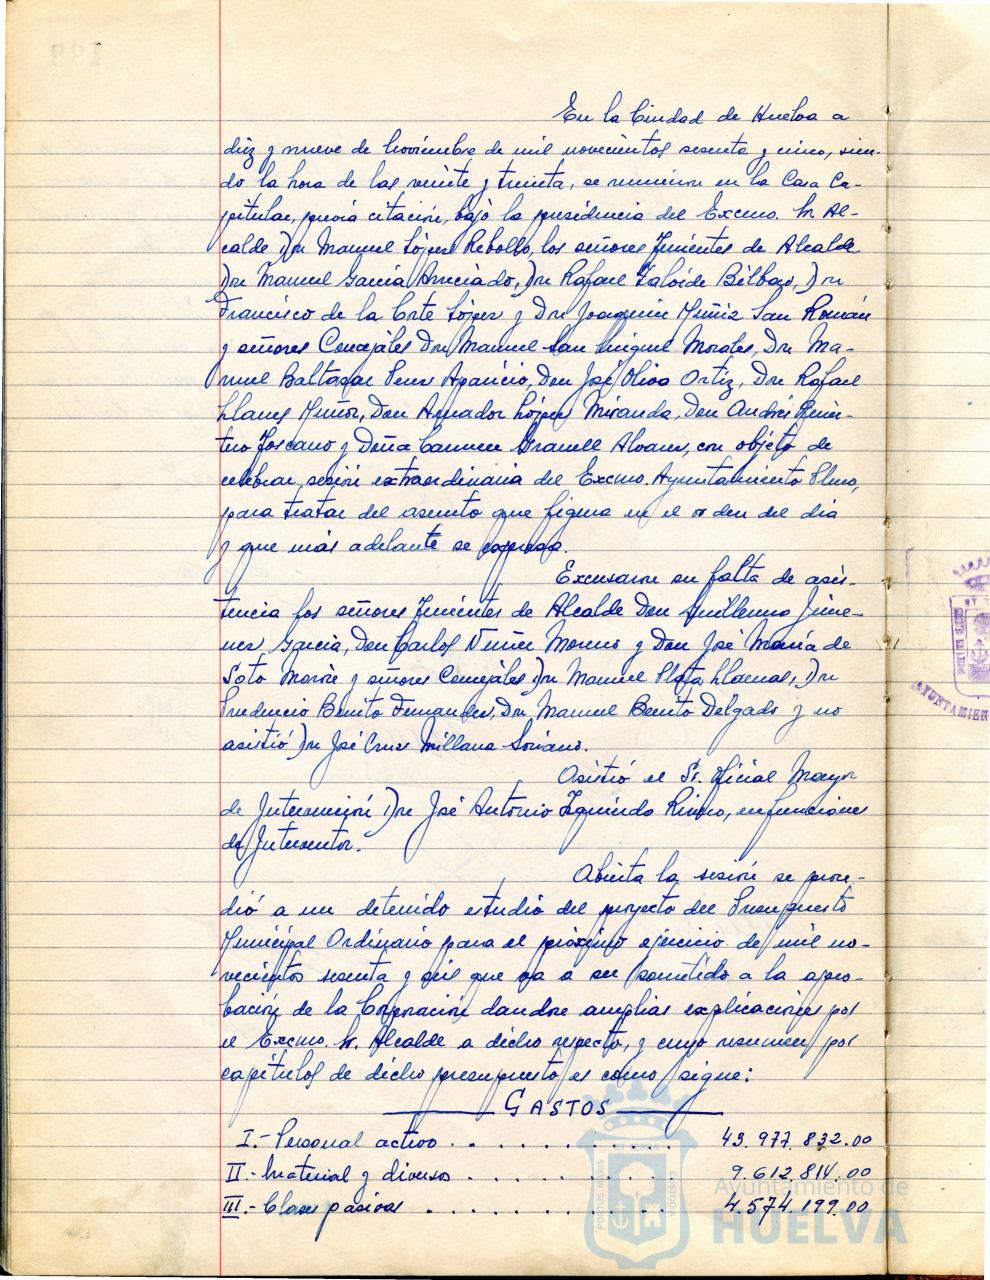 En la Ciudad de Huelva a
diez y nueve de Noviembre de mil novecientos sesenta y cinco, sien-
do la hora de las veinte y treinta, se reunieron en la Casa Ca-
pitular, previa citación, bajo la presidencia del Excmo. Sr Al-
calde Don Manuel López Rebollo, los señores Tenientes de Alcalde
Don Manuel García Anreiado, Don Rafael Bilbao, Don
Francisco de la Corte López y Don Joaquin Muñiz San Román
y señores Concejales Don Manuel San Miguel Morales, Don Ma-
nuel Baltasar Pérez Aparicio, Don José Oliva Ortiz, Don Rafael
Llanes Muñoz, Don Amador López Miranda, Don Andrés Quin-
tero Toscano y Doña Carmen Granell Alvarez, con objeto de
celebrar sesión extraordinaria del Excmo. Ayuntamiento Pleno,
para tratar del asunto que figura en el orden del dia
y que más adelante se expresa.
Excusaron su falta de asis-
tencia los señores Tenientes de Alcalde Don Guillermo Jime-
nez García, Don Carlos Nuñez Moreno y Don José María de
Soto Morón y señores Concejales Don Manuel Plata Llamas, Don
Prudencio Benito Fernandez, Don Manuel Benito Delgado y no
asistió Don José Cruz Millana Soriano.
Asistió el Sr. Oficial Mayor
de Intervención Don José Antonio Izquierdo Rivero, en funciones
de Interventor.
Abierta la sesión se proce-
dió a un detenido estudio del proyecto del Presupuesto
Municipal Ordinario para el próximo ejercicio de mil no-
vecientos sesenta y seis que va a ser sometido a la apro-
bación de la Corporación dandose amplias explicaciones por
el Excmo. Sr. Alcalde a dicho respecto, y cuyo resumen por
capítulos de dicho presupuesto es como sigue:
GASTOS
I.- Personal activo . . . . . . . . . . 43.977.832.00
II.- Material y diversos . . . . . . . . . 9.612.814.00
III.- Clases pasivas . . . . . . . . . . 4.574.199.00
AYUNTAMIEN
Ayuntamiento de
HUELVA